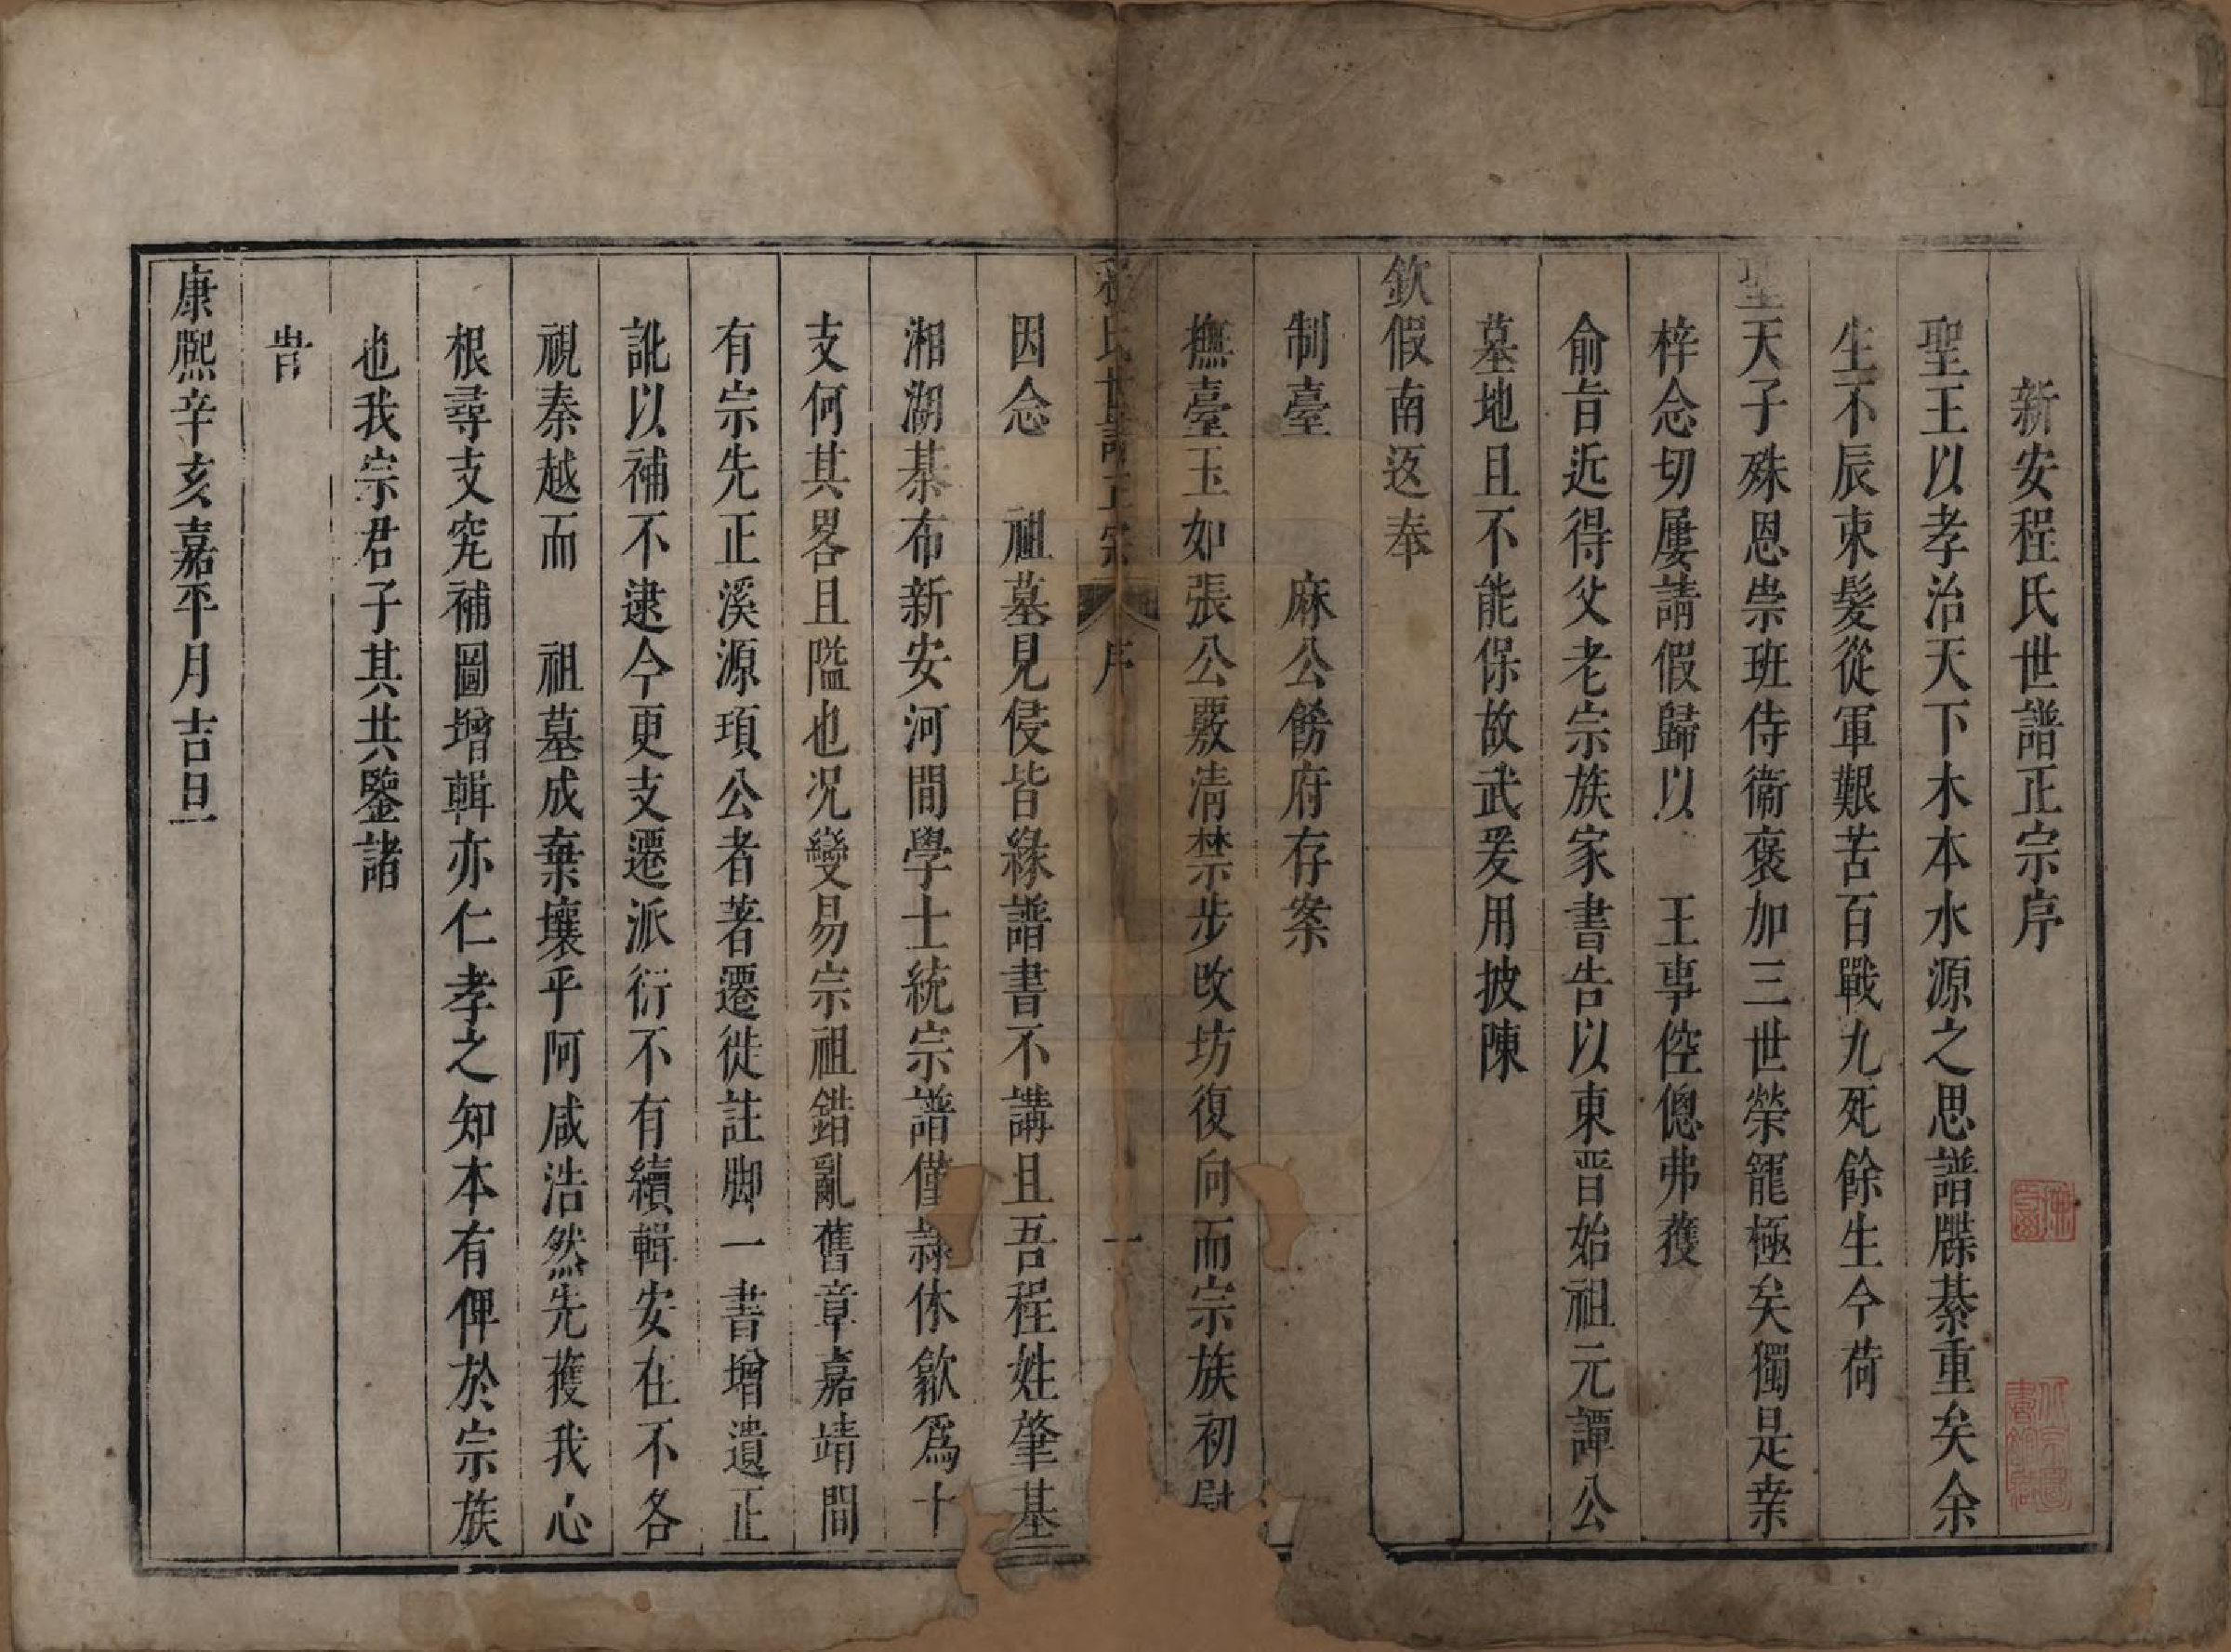 新安程氏世譜正宗序
聖王以孝治天下木本水源之思譜牒綦重矣余
生不辰束髮從軍艱苦百戰九死餘生今荷
聖天子殊恩崇班侍衞褒加三世榮寵極矣獨是桒
梓念切屢請假歸以　王事倥傯弗獲
俞旨近得父老宗族家書告以東晋始祖元譚公
墓地且不能保故武爰用披陳
欽假南返奉
制臺　　麻公飭府存案
撫臺玉如張公覈清禁步改坊復向而宗族初慰
程氏世譜正宗　序　一
因念　祖墓見侵皆緣譜書不講且吾程姓肇基
湘湖棊布新安河間學士統宗譜僅隷休歙爲十
支何其畧且隘也况變易宗祖錯亂舊章嘉靖間
有宗先正溪源項公者著遷徙註脚一書增遺正
訛以補不逮今更支遷派衍不有續輯安在不各
視秦越而　祖墓成棄壤乎阿咸浩然先獲我心
根尋支究補圖增輯亦仁孝之知本有俾於宗族
也我宗君子其共鑒諸
旹
康熈辛亥嘉平月吉旦